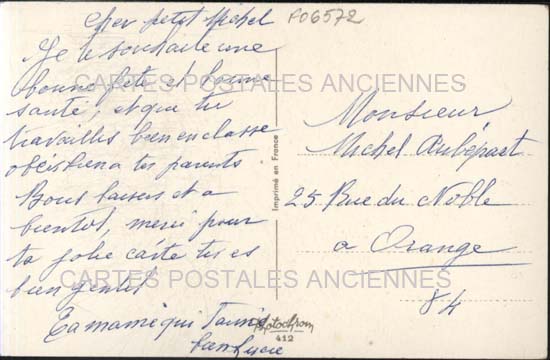 Cher petit Michel
F06572
Je te souhaite une
bonne fête et bonne
santé, et que tu
travailles bien en classe
obéis bien a tes parents
Bons baisers et a
bientot, merci pour
ta jolie carte tu es
bien gentil
Ta mamie qui t'aime
Monsieur
Michel Aubépart
25 Rue du Noble
a Orange
84
Imprimé en France
Photochrom
412
CARTES POSTALES ANCIENNES
CARTES POSTALES ANCIENNES